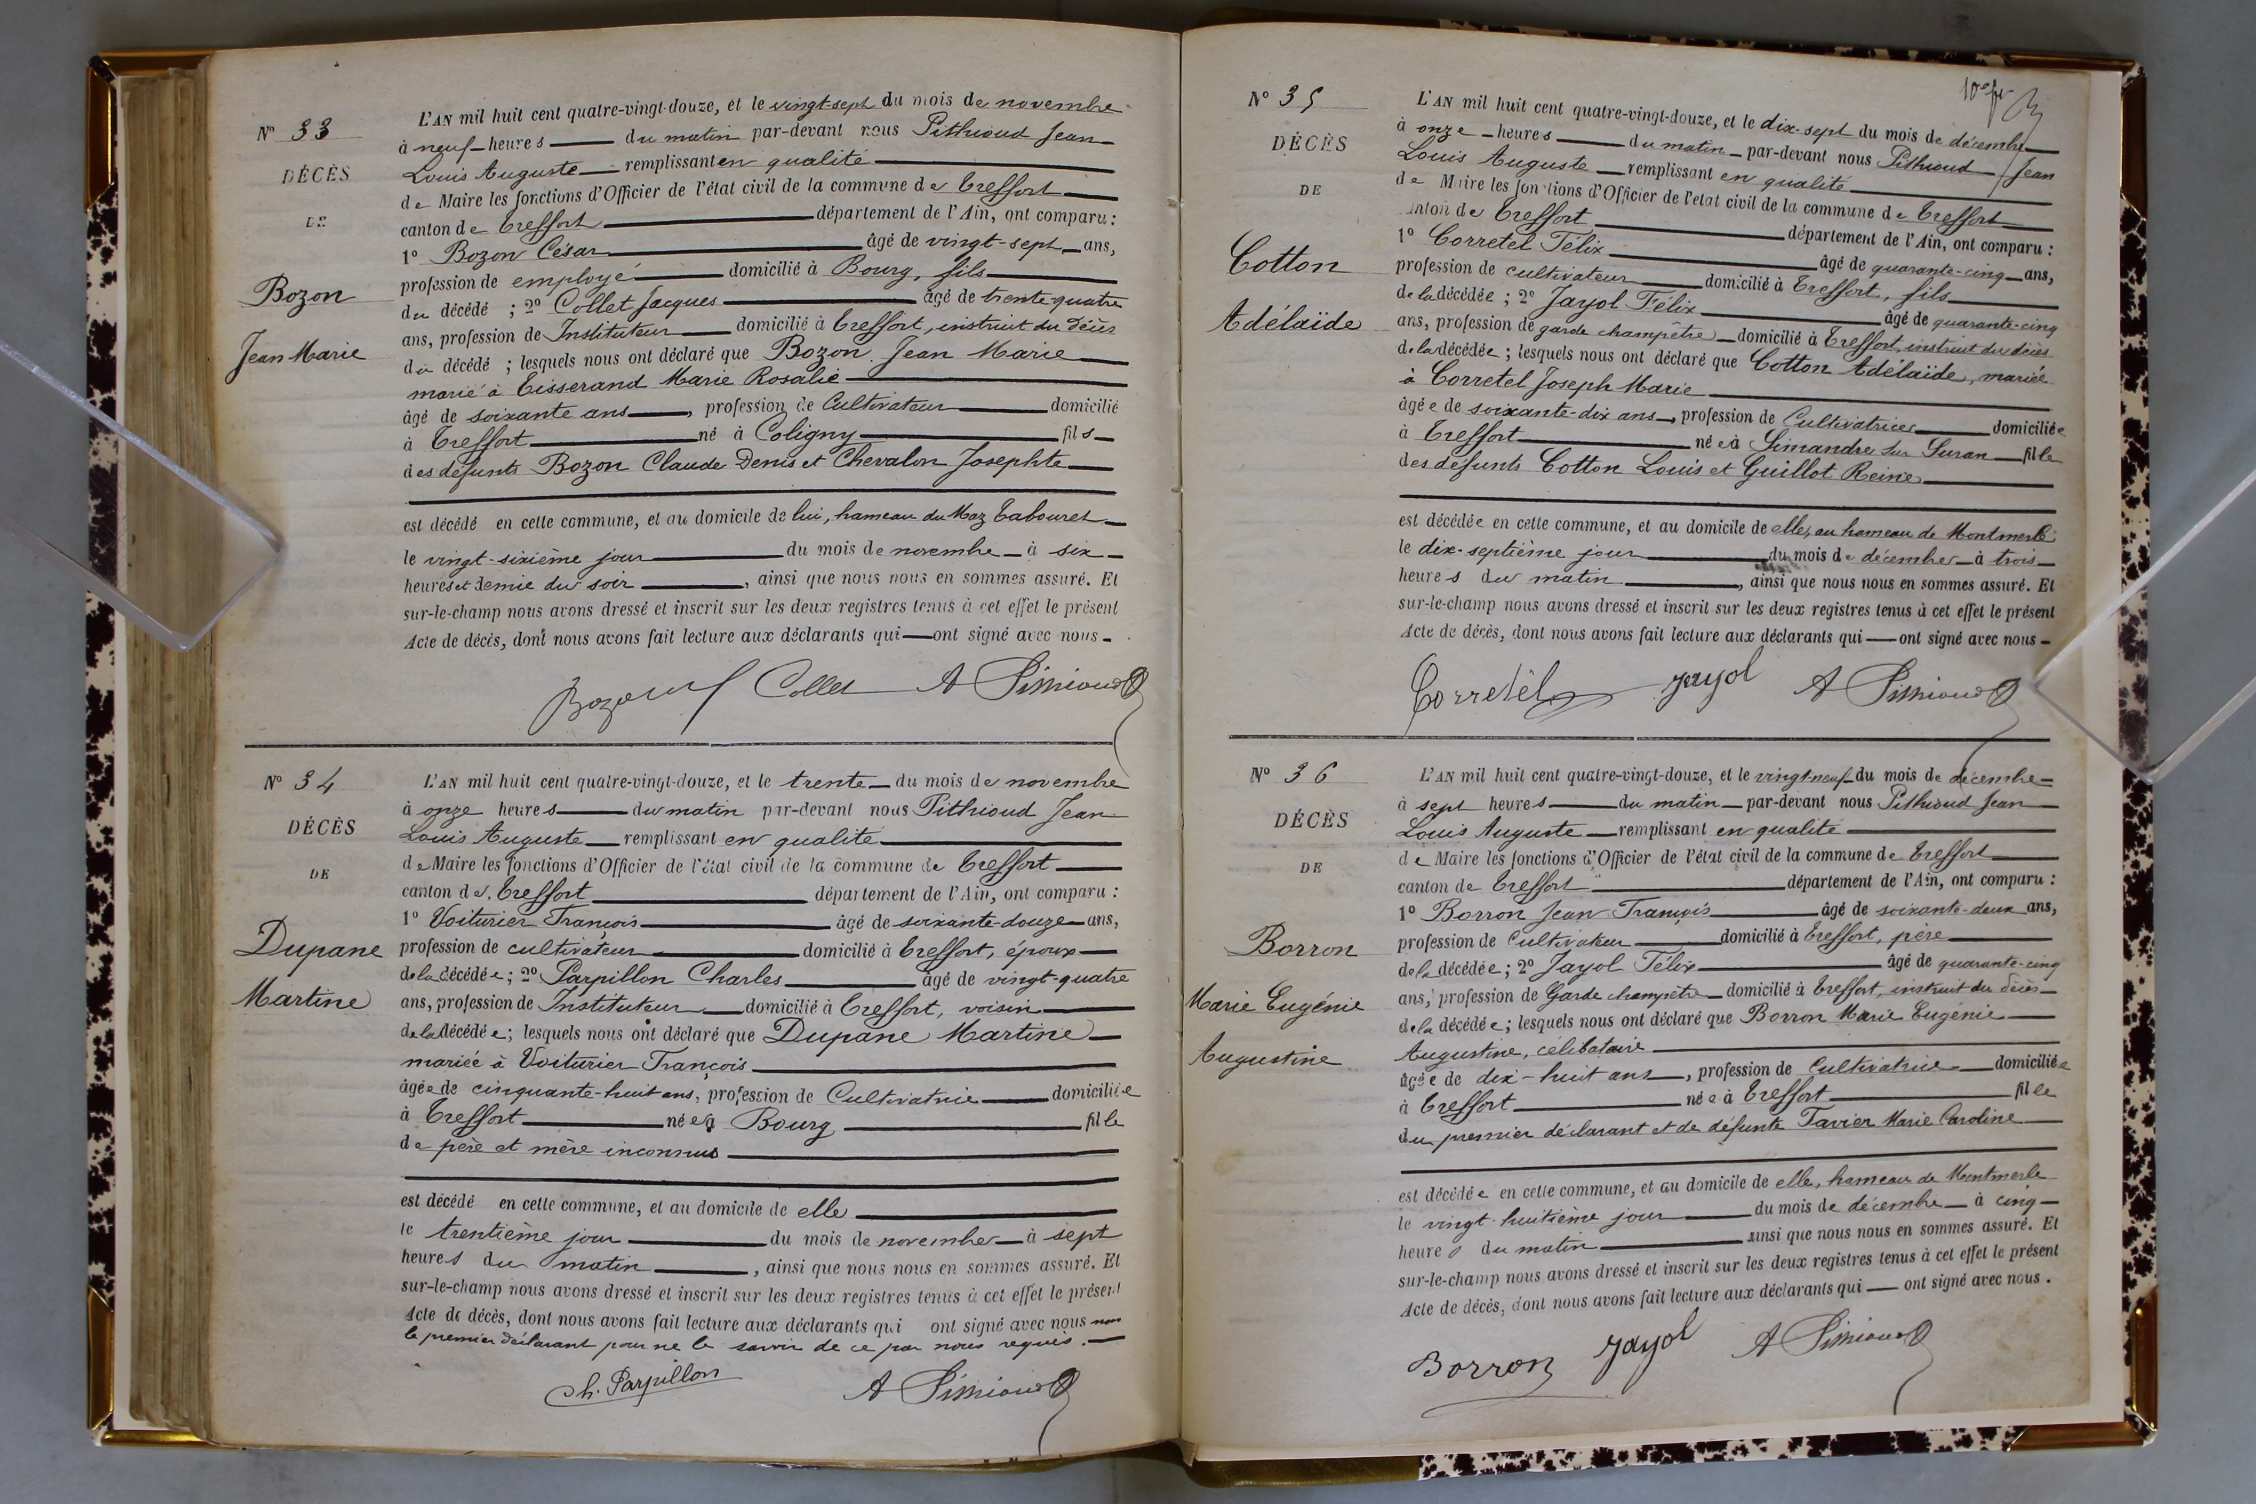 N° 33
DÉCÈS
DE
Bozon
Jean Marie
L'AN mil huit cent quatre-vingt-douze, et le vingt-sept du mois de novembre
à neuf heures du matin par-devant nous Pithioud Jean
Louis Auguste remplissant en qualité
de Maire les fonctions d'Officier de l'état civil de la commune de Treffort
canton de Treffort département de l'Ain, ont comparu :
1° Bozon César âgé de vingt-sept ans,
profession de employé domicilié à Bourg, fils
du décédé ; 2° Collet Jacques âgé de trente-quatre
ans, profession de Instituteur domicilié à Treffort, instruit du décès
du décédé ; lesquels nous ont déclaré que Bozon Jean Marie
marié à Tisserand Marie Rosalie
âgé de soixante ans, profession de Cultivateur domicilié
à Treffort né à Coligny fils
des défunts Bozon Claude Denis et Chevalon Josephte
est décédé en cette commune, et au domicile de lui, hameau du Maz Tabouret
le vingt-sixième jour du mois de novembre à six
heures et demie du soir, ainsi que nous nous en sommes assuré. Et
sur-le-champ nous avons dressé et inscrit sur les deux registres tenus à cet effet le présent
Acte de décès, dont nous avons fait lecture aux déclarants qui ont signé avec nous
Bozon Collet A Pithioud
N° 34
DÉCÈS
DE
Dupane
Martine
L'AN mil huit cent quatre-vingt-douze, et le trente du mois de novembre
à onze heures du matin par-devant nous Pithioud Jean
Louis Auguste remplissant en qualité
de Maire les fonctions d'Officier de l'état civil de la commune de Treffort
canton de Treffort département de l'Ain, ont comparu :
1° Voiturier François âgé de soixante-douze ans,
profession de cultivateur domicilié à Treffort, époux
de la décédée ; 2° Parpillon Charles âgé de vingt-quatre
ans, profession de Instituteur domicilié à Treffort, voisin
de la décédée ; lesquels nous ont déclaré que Dupane Martine
mariée à Voiturier François
âgée de cinquante-huit ans, profession de Cultivatrice domiciliée
à Treffort née à Bourg fille
de père et mère inconnus
est décédé en cette commune, et au domicile de elle
le trentième jour du mois de novembre à sept
heures du matin, ainsi que nous nous en sommes assuré. Et
sur-le-champ nous avons dressé et inscrit sur les deux registres tenus à cet effet le présent
Acte de décès, dont nous avons fait lecture aux déclarants qui ont signé avec nous non
le premier déclarant pour ne le savoir de ce par nous requis.
Ch. Parpillon A Pithioud
N° 35
DÉCÈS
DE
Cotton
Adélaïde
L'AN mil huit cent quatre-vingt-douze, et le dix-sept du mois de décembre
à onze heures du matin par-devant nous Pithioud Jean
Louis Auguste remplissant en qualité
de Maire les fonctions d'Officier de l'état civil de la commune de Treffort
canton de Treffort département de l'Ain, ont comparu :
1° Corretel Félix âgé de quarante-cinq ans,
profession de cultivateur domicilié à Treffort, fils
de la décédée ; 2° Jayol Félix âgé de quarante-cinq
ans, profession de garde champêtre domicilié à Treffort, instruit du décès
de la décédée ; lesquels nous ont déclaré que Cotton Adélaïde, mariée
à Corretel Joseph Marie
âgée de soixante-dix ans, profession de Cultivatrice domiciliée
à Treffort née à Simandre sur Suran fille
des défunts Cotton Louis et Guillot Reine
est décédée en cette commune, et au domicile de elle, au hameau de Montmerle
le dix-septième jour du mois de décembre à trois
heures du matin, ainsi que nous nous en sommes assuré. Et
sur-le-champ nous avons dressé et inscrit sur les deux registres tenus à cet effet le présent
Acte de décès, dont nous avons fait lecture aux déclarants qui ont signé avec nous
Corretel Jayol A Pithioud
N° 36
DÉCÈS
DE
Borron
Marie Eugénie
Augustine
L'AN mil huit cent quatre-vingt-douze, et le vingt-neuf du mois de décembre
à sept heures du matin par-devant nous Pithioud Jean
Louis Auguste remplissant en qualité
de Maire les fonctions d'Officier de l'état civil de la commune de Treffort
canton de Treffort département de l'Ain, ont comparu :
1° Borron Jean François âgé de soixante-deux ans,
profession de Cultivateur domicilié à Treffort, père
de la décédée ; 2° Jayol Félix âgé de quarante-cinq
ans, profession de Garde champêtre domicilié à Treffort, instruit du décès
de la décédée ; lesquels nous ont déclaré que Borron Marie Eugénie
Augustine, célibataire
âgée de dix-huit ans, profession de Cultivatrice domiciliée
à Treffort née à Treffort fille
du premier déclarant et de défunte Favier Marie Caroline
est décédée en cette commune, et au domicile de elle, hameau de Montmerle
le vingt-huitième jour du mois de décembre à cinq
heures du matin ainsi que nous nous en sommes assuré. Et
sur-le-champ nous avons dressé et inscrit sur les deux registres tenus à cet effet le présent
Acte de décès, dont nous avons fait lecture aux déclarants qui ont signé avec nous.
Borron Jayol A Pithioud